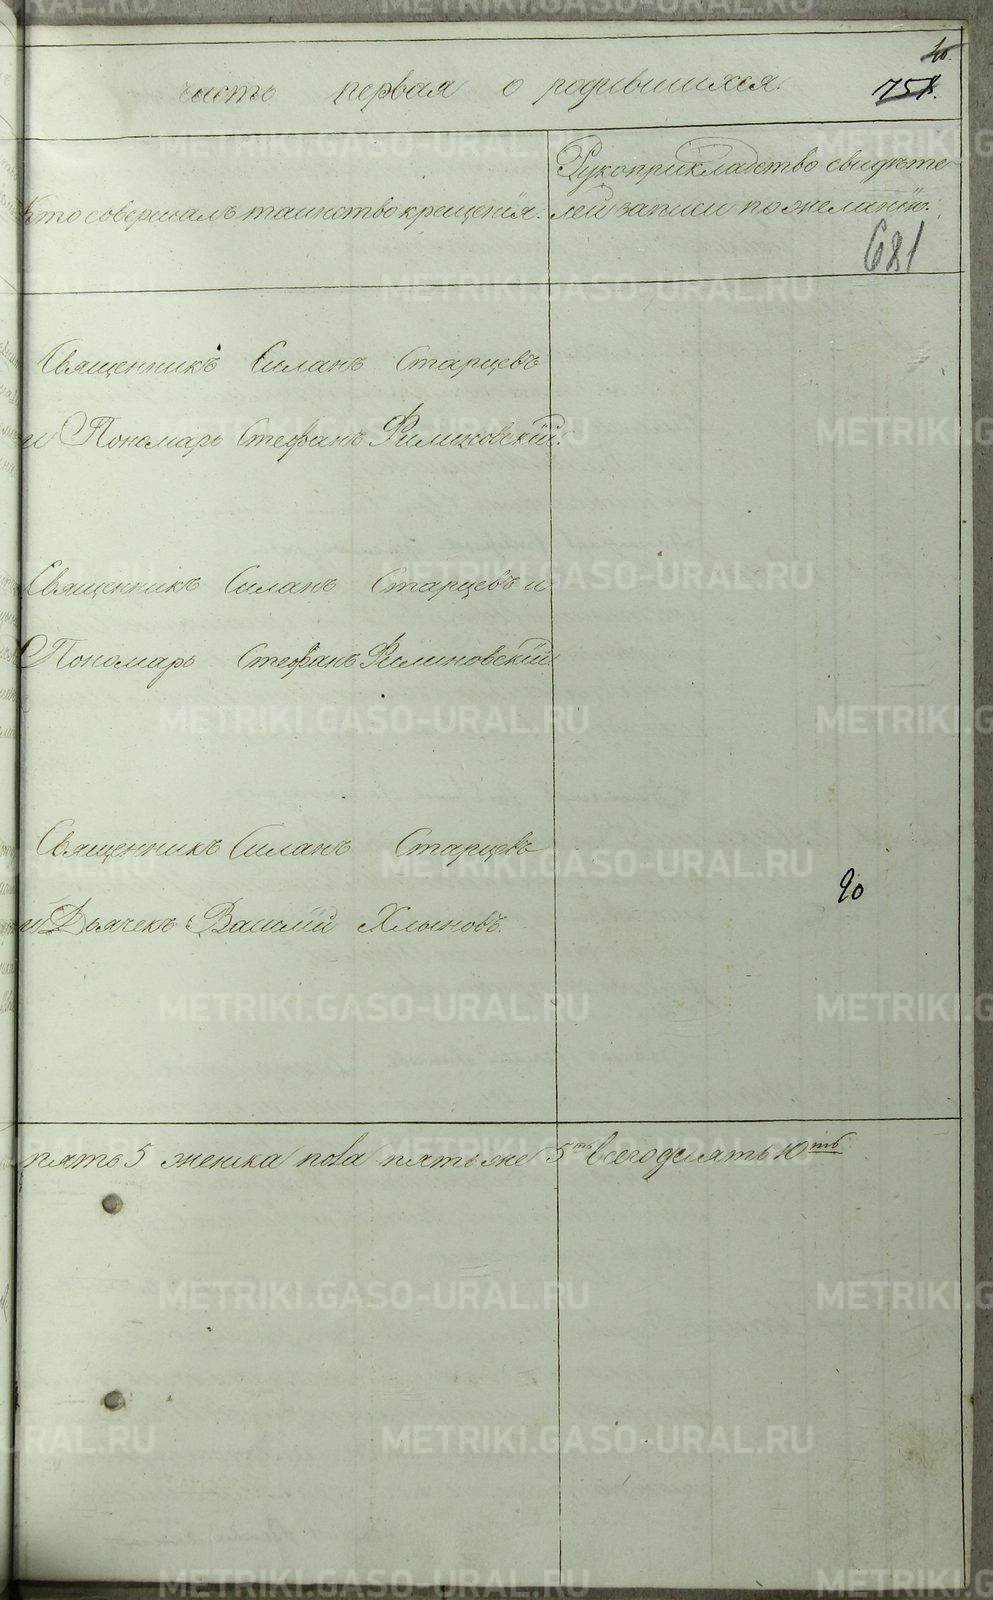 часть первая о родившихся.
751.
Кто совершалъ таинство крещенія.
Рукоприкладство свидѣте-
лей записи по желанію.
681
Священникъ Силанъ Старцевъ
и Пономарь Стефанъ Филиновскій.
Священникъ Силанъ Старцевъ и
Пономарь Стефанъ Филиновскій
Священникъ Силанъ Старцевъ
и Дьячекъ Василій Хлыновъ.
20
пять 5 женска пола пять же 5ть всего десять 10ть
METRIKI.GASO-URAL.RU